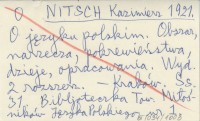 O NITSCH Kazimierz 1921.
O języku polskim. Obszar,
narzecza, pokrewieństwa,
dzieje, opracowania. Wyd.
2 rozszerz. — Kraków. Ss.
37. Biblioteczka Tow. Miłoś-
ników Języka Polskiego.